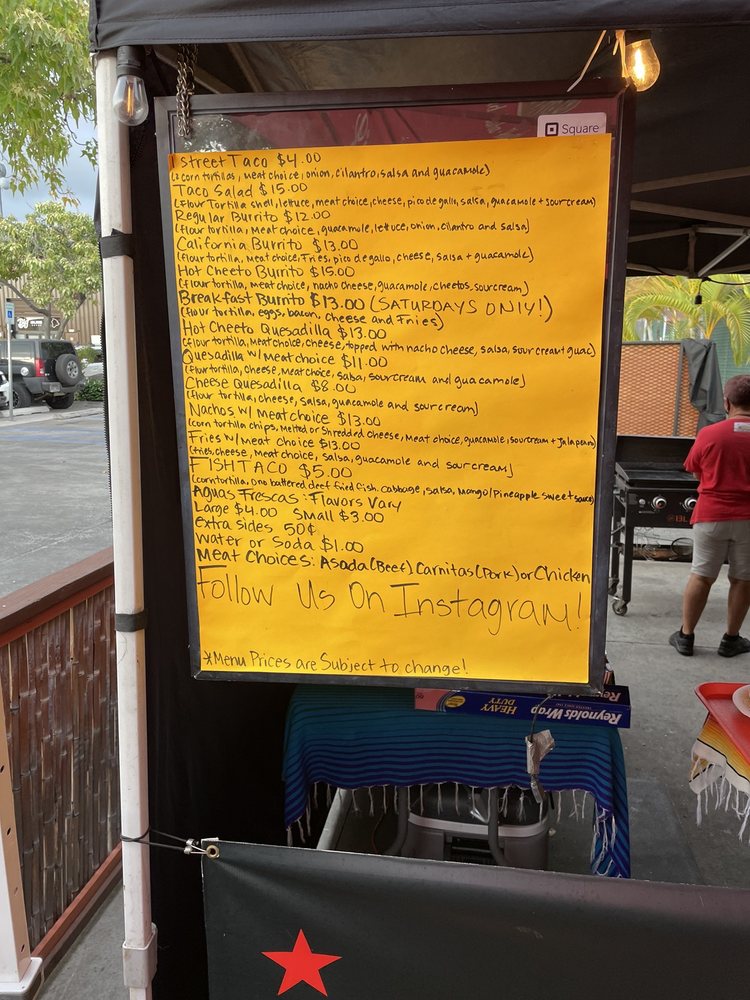 Square
1 Street Taco $4.00
(2 corn tortillas, meat choice, onion, cilantro, salsa and guacamole)
Taco Salad $15.00
(flour Tortilla shell, lettuce, meat choice, cheese, pico de gallo, salsa, guacamole + sour cream)
Regular Burrito $12.00
(flour tortilla, meat choice, guacamole, lettuce, onion, cilantro and salsa)
California Burrito $13.00
(flour tortilla, meat choice, Fries, pico de gallo, cheese, salsa + guacamole)
Hot Cheeto Burrito $15.00
(flour tortilla, meat choice, nacho cheese, guacamole, cheetos, sour cream)
Breakfast Burrito $13.00 (SATURDAYS ONLY!)
(flour tortilla, eggs, bacon, cheese and Fries)
Hot Cheeto Quesadilla $13.00
(flour tortilla, Meat choice, cheese, topped with nacho cheese, salsa, sour cream + guac)
Quesadilla w/ Meat choice $11.00
(flour tortilla, cheese, Meat choice, salsa, sour cream and guacamole)
Cheese Quesadilla $8.00
(flour tortilla, cheese, salsa, guacamole and sour cream)
Nachos w/ Meat choice $13.00
(corn tortilla chips, Melted or Shredded Cheese, Meat choice, guacamole, sour cream + Jalapeno)
Fries w/ Meat Choice $13.00
(fries, cheese, Meat choice, salsa, guacamole and sour cream)
FISH TACO $5.00
(corn tortilla, one battered deef fried fish, cabbage, salsa, Mango/Pineapple sweet sauce)
Aguas Frescas: Flavors Vary
Large $4.00 Small $3.00
Extra Sides 50¢
Water or Soda $1.00
Meat Choices: Asada (Beef) Carnitas (Pork) or Chicken
Follow Us On Instagram!
*Menu Prices are Subject to change!
Reynolds Wrap
HEAVY DUTY